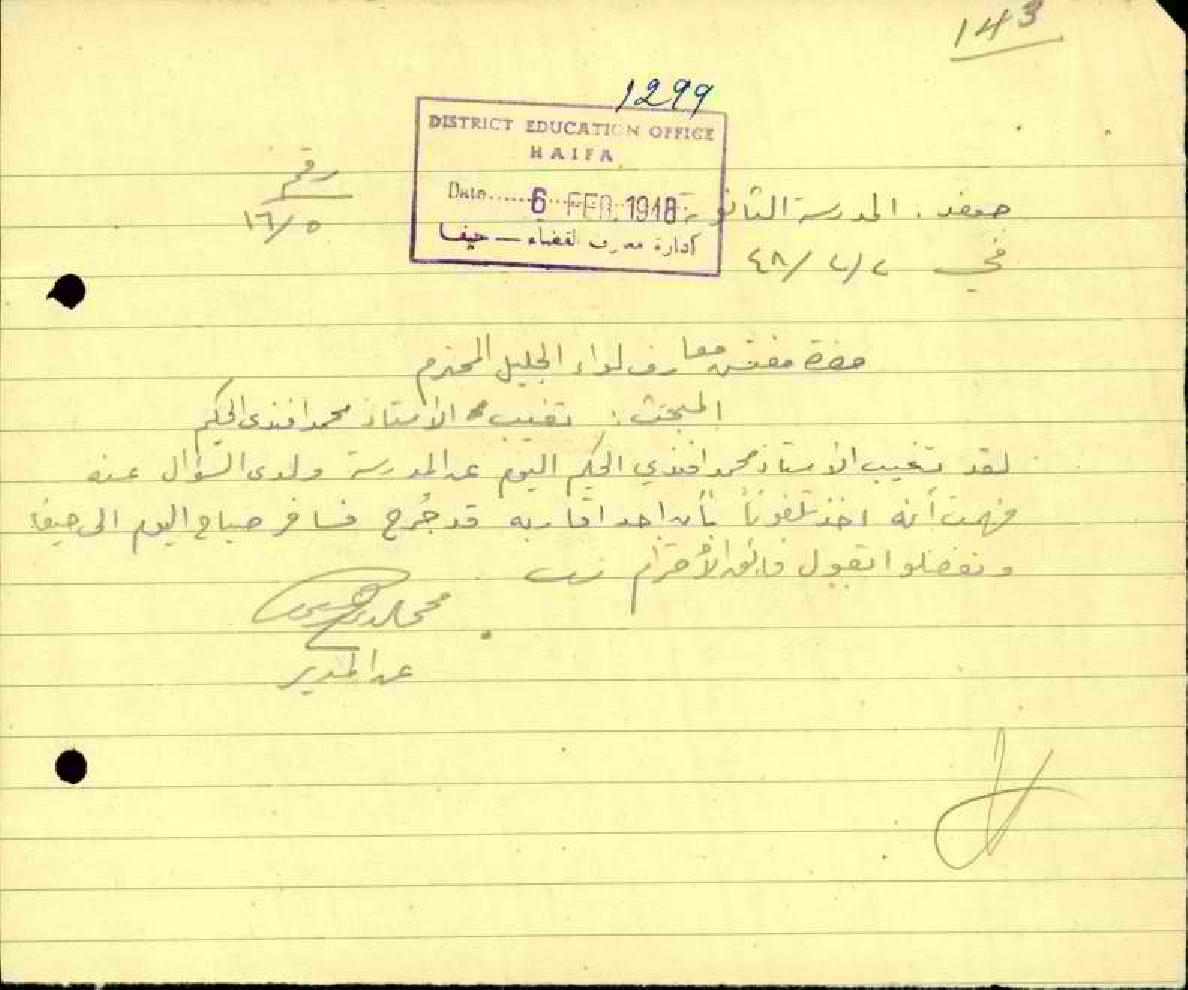 143
1299
DISTRICT EDUCATION OFFICE
HAIFA
Date...... 6 FEB. 1948
ادارة معارف القضاء — حيفا
رقم
١٦/٥
صفد. المدرسة الثانوية
في ٢/٢/٤٨
حضرة مفتش معارف لواء الجليل المحترم
المبحث: تغيب الاستاذ محمد افندي الحكيم
لقد تغيب الاستاذ محمد افندي الحكيم اليوم عن المدرسة ولدى السؤال عنه
فهمت أنه اخذ تلفوناً بأن احد اقاربه قد جُرح فسافر صباح اليوم الى حيفا.
وتفضلوا بقبول فائق الأحترام
عن المدير